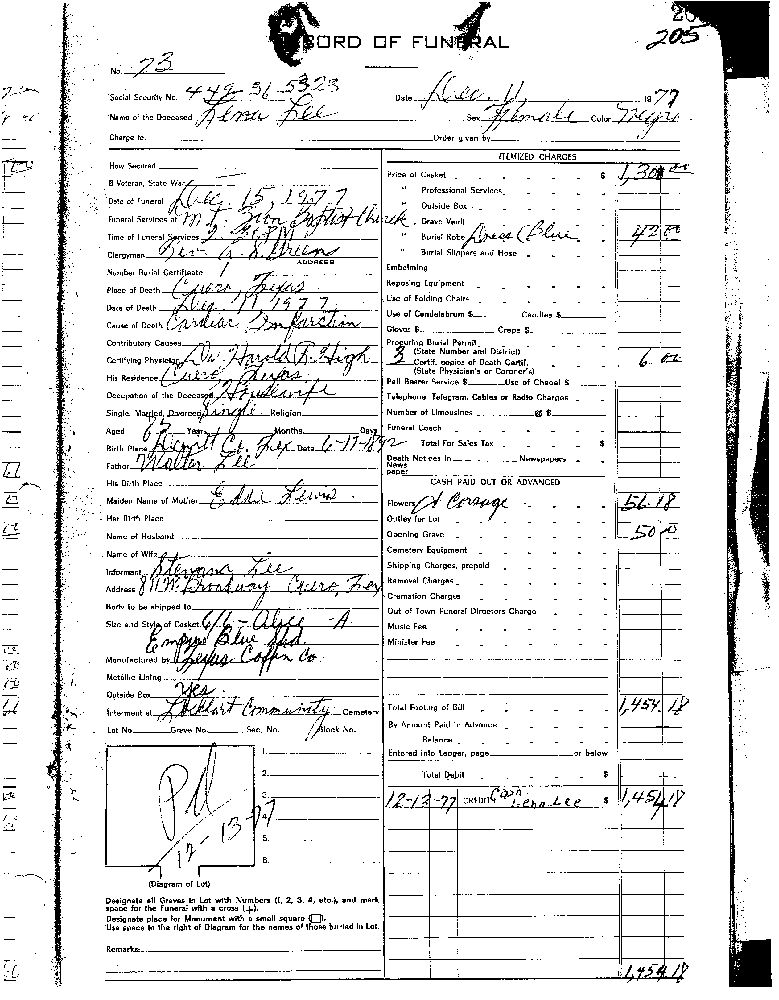 205
RECORD OF FUNERAL
No. 73
Social Security No. 449-36-5323
Date Dec. 11, 1977
Name of the Deceased Lee Sex Female Color Negro
Charge to Order given by
How Secured
If Veteran, State War
Date of Funeral Dec. 15, 1977
Funeral Services at Mt. Zion Baptist Church
Time of Funeral Services 2: P.M.
Clergyman Rev. Green
ADDRESS
Number Burial Certificate 1
Place of Death Cuero, Texas
Date of Death Dec. 11 1977
Cause of Death Cardiac Infarction
Contributory Causes
Certifying Physician Dr. Harold R. High
His Residence Cuero, Texas
Occupation of the Deceased Housewife
Single, Married, Divorced Single Religion
Aged Years Months Days
Birth Place Dewitt Co. Tex Date 6-17-1892
Father Walter Lee
His Birth Place
Maiden Name of Mother Eddie Lewis
Her Birth Place
Name of Husband
Name of Wife
Informant Lee
Address 811 W. Broadway Cuero, Tex
Body to be shipped to
Size and Style of Casket 6/6 - -A
Empire Blue
Manufactured by Texas Coffin Co.
Metallic Lining
Outside Box Yes
Interment at Lockhart Community Cemetery
Lot No. Grave No. Sec. No. Block No.
Pd
12-13-77
1.
2.
3.
4.
5.
6.
(Diagram of Lot)
Designate all Graves in Lot with Numbers (1, 2, 3, 4, etc.), and mark
space for the Funeral with a cross (+).
Designate place for Monument with a small square (□).
Use space to the right of Diagram for the names of those buried in Lot.
Remarks:
ITEMIZED CHARGES
Price of Casket $ 1,300 00
" Professional Services
" Outside Box
" Grave Vault
" Burial Robe Dress (Blue 42 00
" Burial Slippers and Hose
Embalming
Reposing Equipment
Use of Folding Chairs
Use of Candelabrum $ Candles $
Gloves $ Crepe $
Procuring Burial Permit
(State Number and District)
3 Certif. copies of Death Certif. 6 00
(State Physician's or Coroner's)
Pall Bearer Service $ Use of Chapel $
Telephone, Telegram, Cables or Radio Charges
Number of Limousines @ $
Funeral Coach
Total For Sales Tax $
Death Notices in Newspapers
News
paper
CASH PAID OUT OR ADVANCED
Flowers & Corsage 56.18
Outlay for Lot
Opening Grave 50 00
Cemetery Equipment
Shipping Charges, prepaid
Removal Charges
Cremation Charges
Out of Town Funeral Directors Charge
Music Fee
Minister Fee
Total Footing of Bill 1,454.18
By Amount Paid in Advance
Balance
Entered into Ledger, page or below
Total Debit $
12-13-77 CREDIT Cash Lena Lee $ 1,454 18
1,454.18